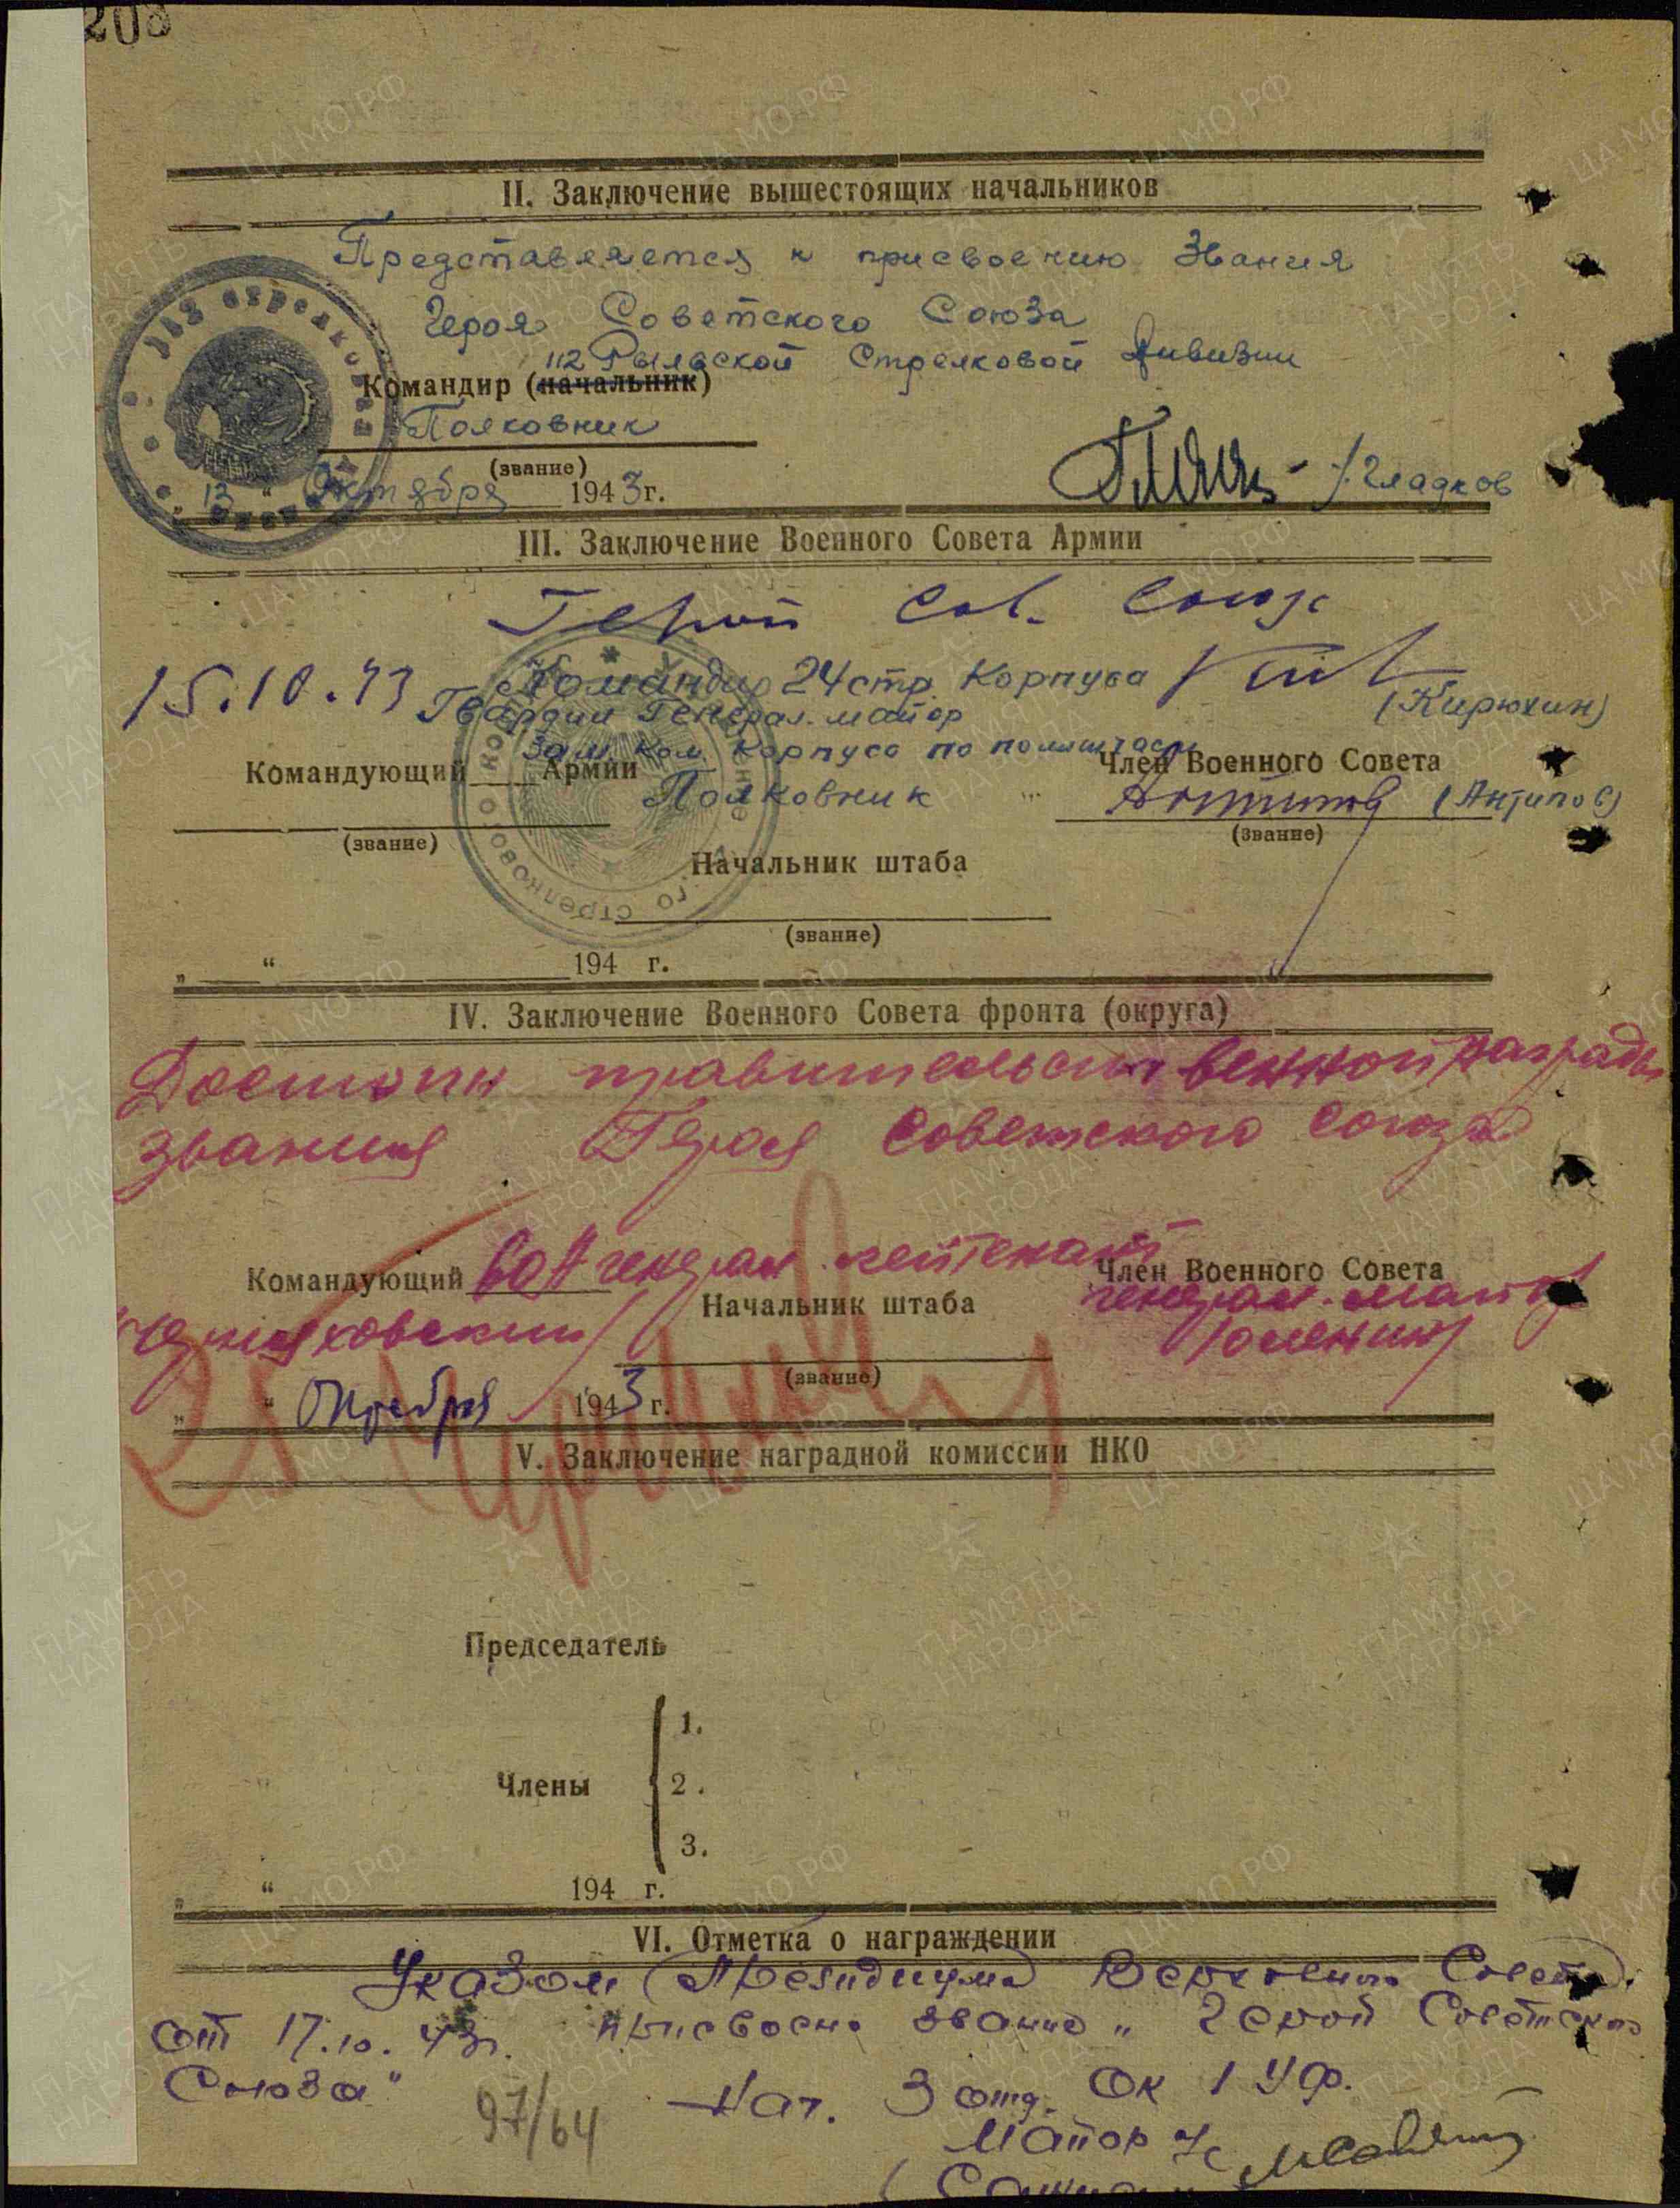 203
II. Заключение вышестоящих начальников
Представляется к присвоению Звания
Героя Советского Союза
112 Рыльской Стрелковой Дивизии
Командир (начальник)
Полковник
(звание)
/Гладков
13 " Октября 1943 г.
III. Заключение Военного Совета Армии
Герой Сов. Союза
15.10.43 Командир 24 стр. Корпуса
Гвардии Генерал-майор (Кирюхин)
Зам. ком. корпуса по полит части
Командующий Армии Член Военного Совета
Полковник " (Антипов)
(звание) (звание)
Начальник штаба
(звание)
„ “ 194 г.
IV. Заключение Военного Совета фронта (округа)
Достоин правительственной награды
звания Героя Советского Союза
Командующий 60 А генерал-лейтенант Член Военного Совета
Начальник штаба генерал-майор
Черняховский/ /Оленин/
(звание)
„ “ Октября 1943 г.
V. Заключение наградной комиссии НКО
Председатель
Члены
1.
2.
3.
„ “ 194 г.
VI. Отметка о награждении
Указом Президиума Верховного Совета
от 17.10.43г. присвоено звание „Герой Советского
Союза"
97/64
Нач. 3 отд. ОК 1 УФ.
Майор
ЦА МО РФ
ПАМЯТЬ
НАРОДА